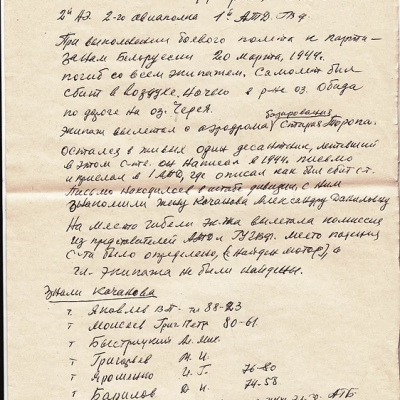 2й АЭ. 2-го авиаполка 1й АТД. Гвф.
При выполнении боевого полета к парти-
занам Белоруссии 20 марта, 1944.
погиб со всем экипажем. Самолет был
сбит в воздухе. Ночью в р-не оз. Обида
по дороге на оз. Черея.
базирования
Экипаж вылетел с аэродрома Старая Торопа.
Остался в живых один десантник, летевший
в этом с-те. он написал в 1944. письмо
и прислал в 1 АТД, где описал как был сбит с-т.
Письмо находилось в штабе дивизии, с ним
знакомили жену Качанова Александру Даниловну
На место гибели эк-жа вылетала комиссия
из представителей АТД и ГУГВФ. место падения
с-та было определено, (найден мотор), а
чл. экипажа не были найдены.
Знали Качанова
т Яковлев В.П. - тл 88-23
т Моисеев Григ Петр 80-61
т Быстрицкий Ал. Мих.
т Григорьев М. И.
т Яроменко И. Г. 76-80
т Д. И. 74-58
АТБ.